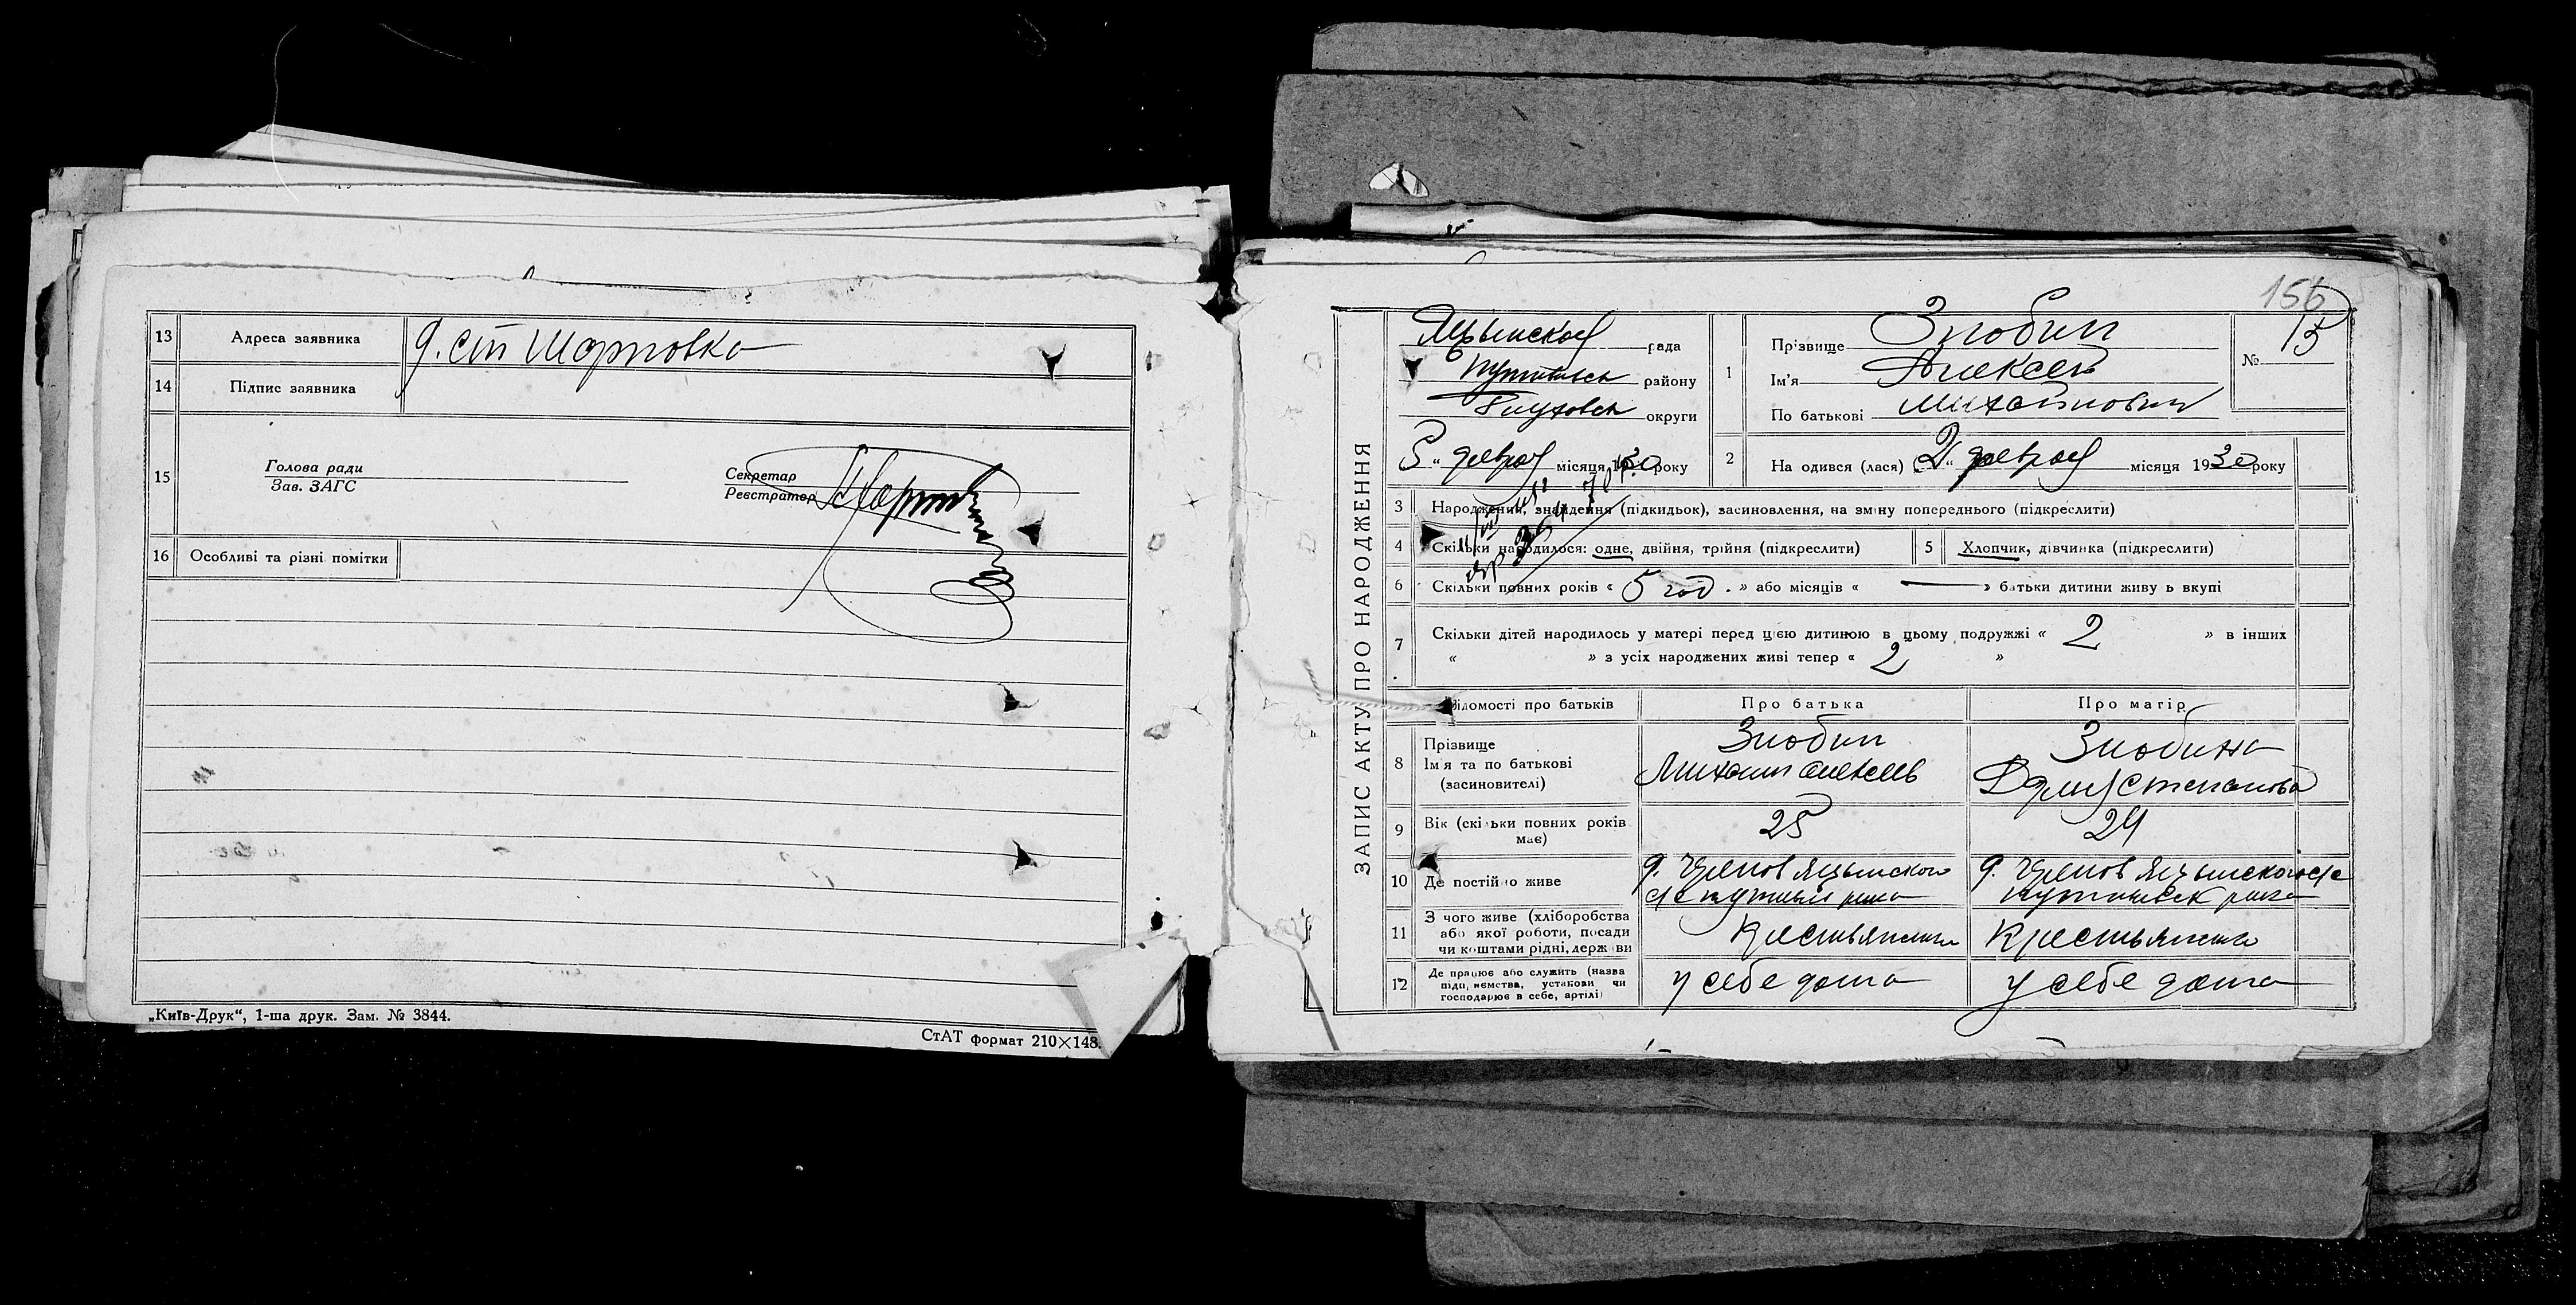 13 Адреса заявника д. ст Шарповка
14 Підпис заявника
15 Голова ради
Зав. ЗАГС
Секретар
Реєстратор
16 Особливі та різні помітки
„Київ-Друк“, 1-ша друк. Зам. № 3844.
СтАТ формат 210×148.
156
ЗАПИС АКТУ ПРО НАРОДЖЕННЯ
рада
Путивльск району
Глуховск округи
5 „ февраля місяця 1930 року
1 Прізвище Злобин
Ім'я Алексей
По батькові Михайлович
№ 15
2 На одився (лася) „ 2 “ февраля місяця 1930 року
3 Народжений, знайдення (підкидьок), засиновлення, на зміну попереднього (підкреслити)
4 Скільки народилося: одне, двійня, трійня (підкреслити)
5 Хлопчик, дівчинка (підкреслити)
6 Скільки повних років « 5 год. » або місяців « — » батьки дитини живу ь вкупі
7 Скільки дітей народилось у матері перед цією дитиною в цьому подружжі « 2 » в інших
« » з усіх народжених живі тепер « 2 »
Відомості про батьків Про батька Про матір
8 Прізвище Злобин Злобина
Ім'я та по батькові Михаил Алексеев Степанова
(засиновителі)
9 Вік (скільки повних років має) 25 24
10 Де постійно живе
11 З чого живе (хліборобства
або якої роботи, посади
чи коштами рідні, держ ви
Крестьянина Крестьянина
12 Де працює або служить (назва
підп, иємства, установи чи
господарює в себе, артілі)
у себе дома у себе дома